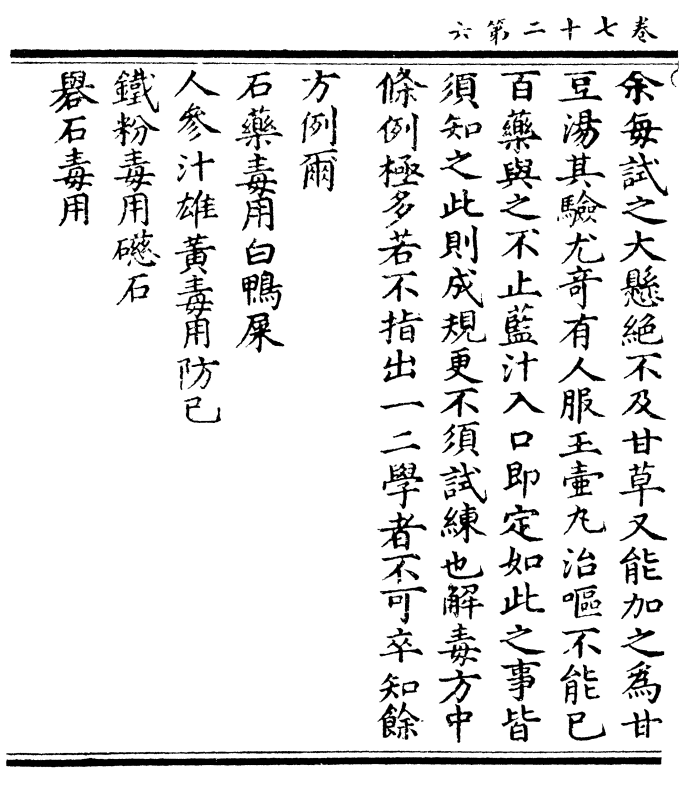 卷七十二第六
余每試之大懸絕不及甘草又能加之為甘
豆湯其驗尤竒有人服玉壷丸治嘔不能已
百藥與之不止藍汁入口即定如此之事皆
須知之此則成規更不須試練也解毒方中
條例極多若不指出一二學者不可卒知餘
方例爾
石藥毒用白鴨屎
人參汁雄黃毒用防已
鐵粉毒用礠石
礜石毒用